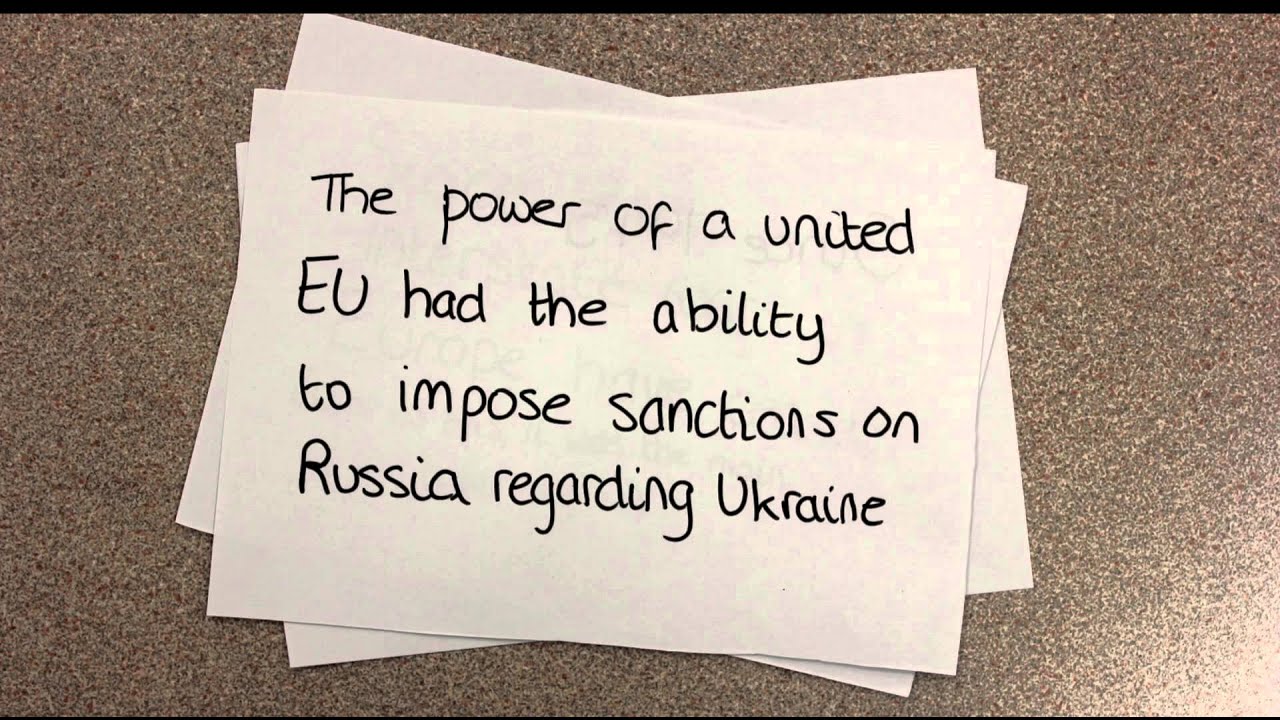 The power of a united
EU had the ability
to impose sanctions on
Russia regarding Ukraine